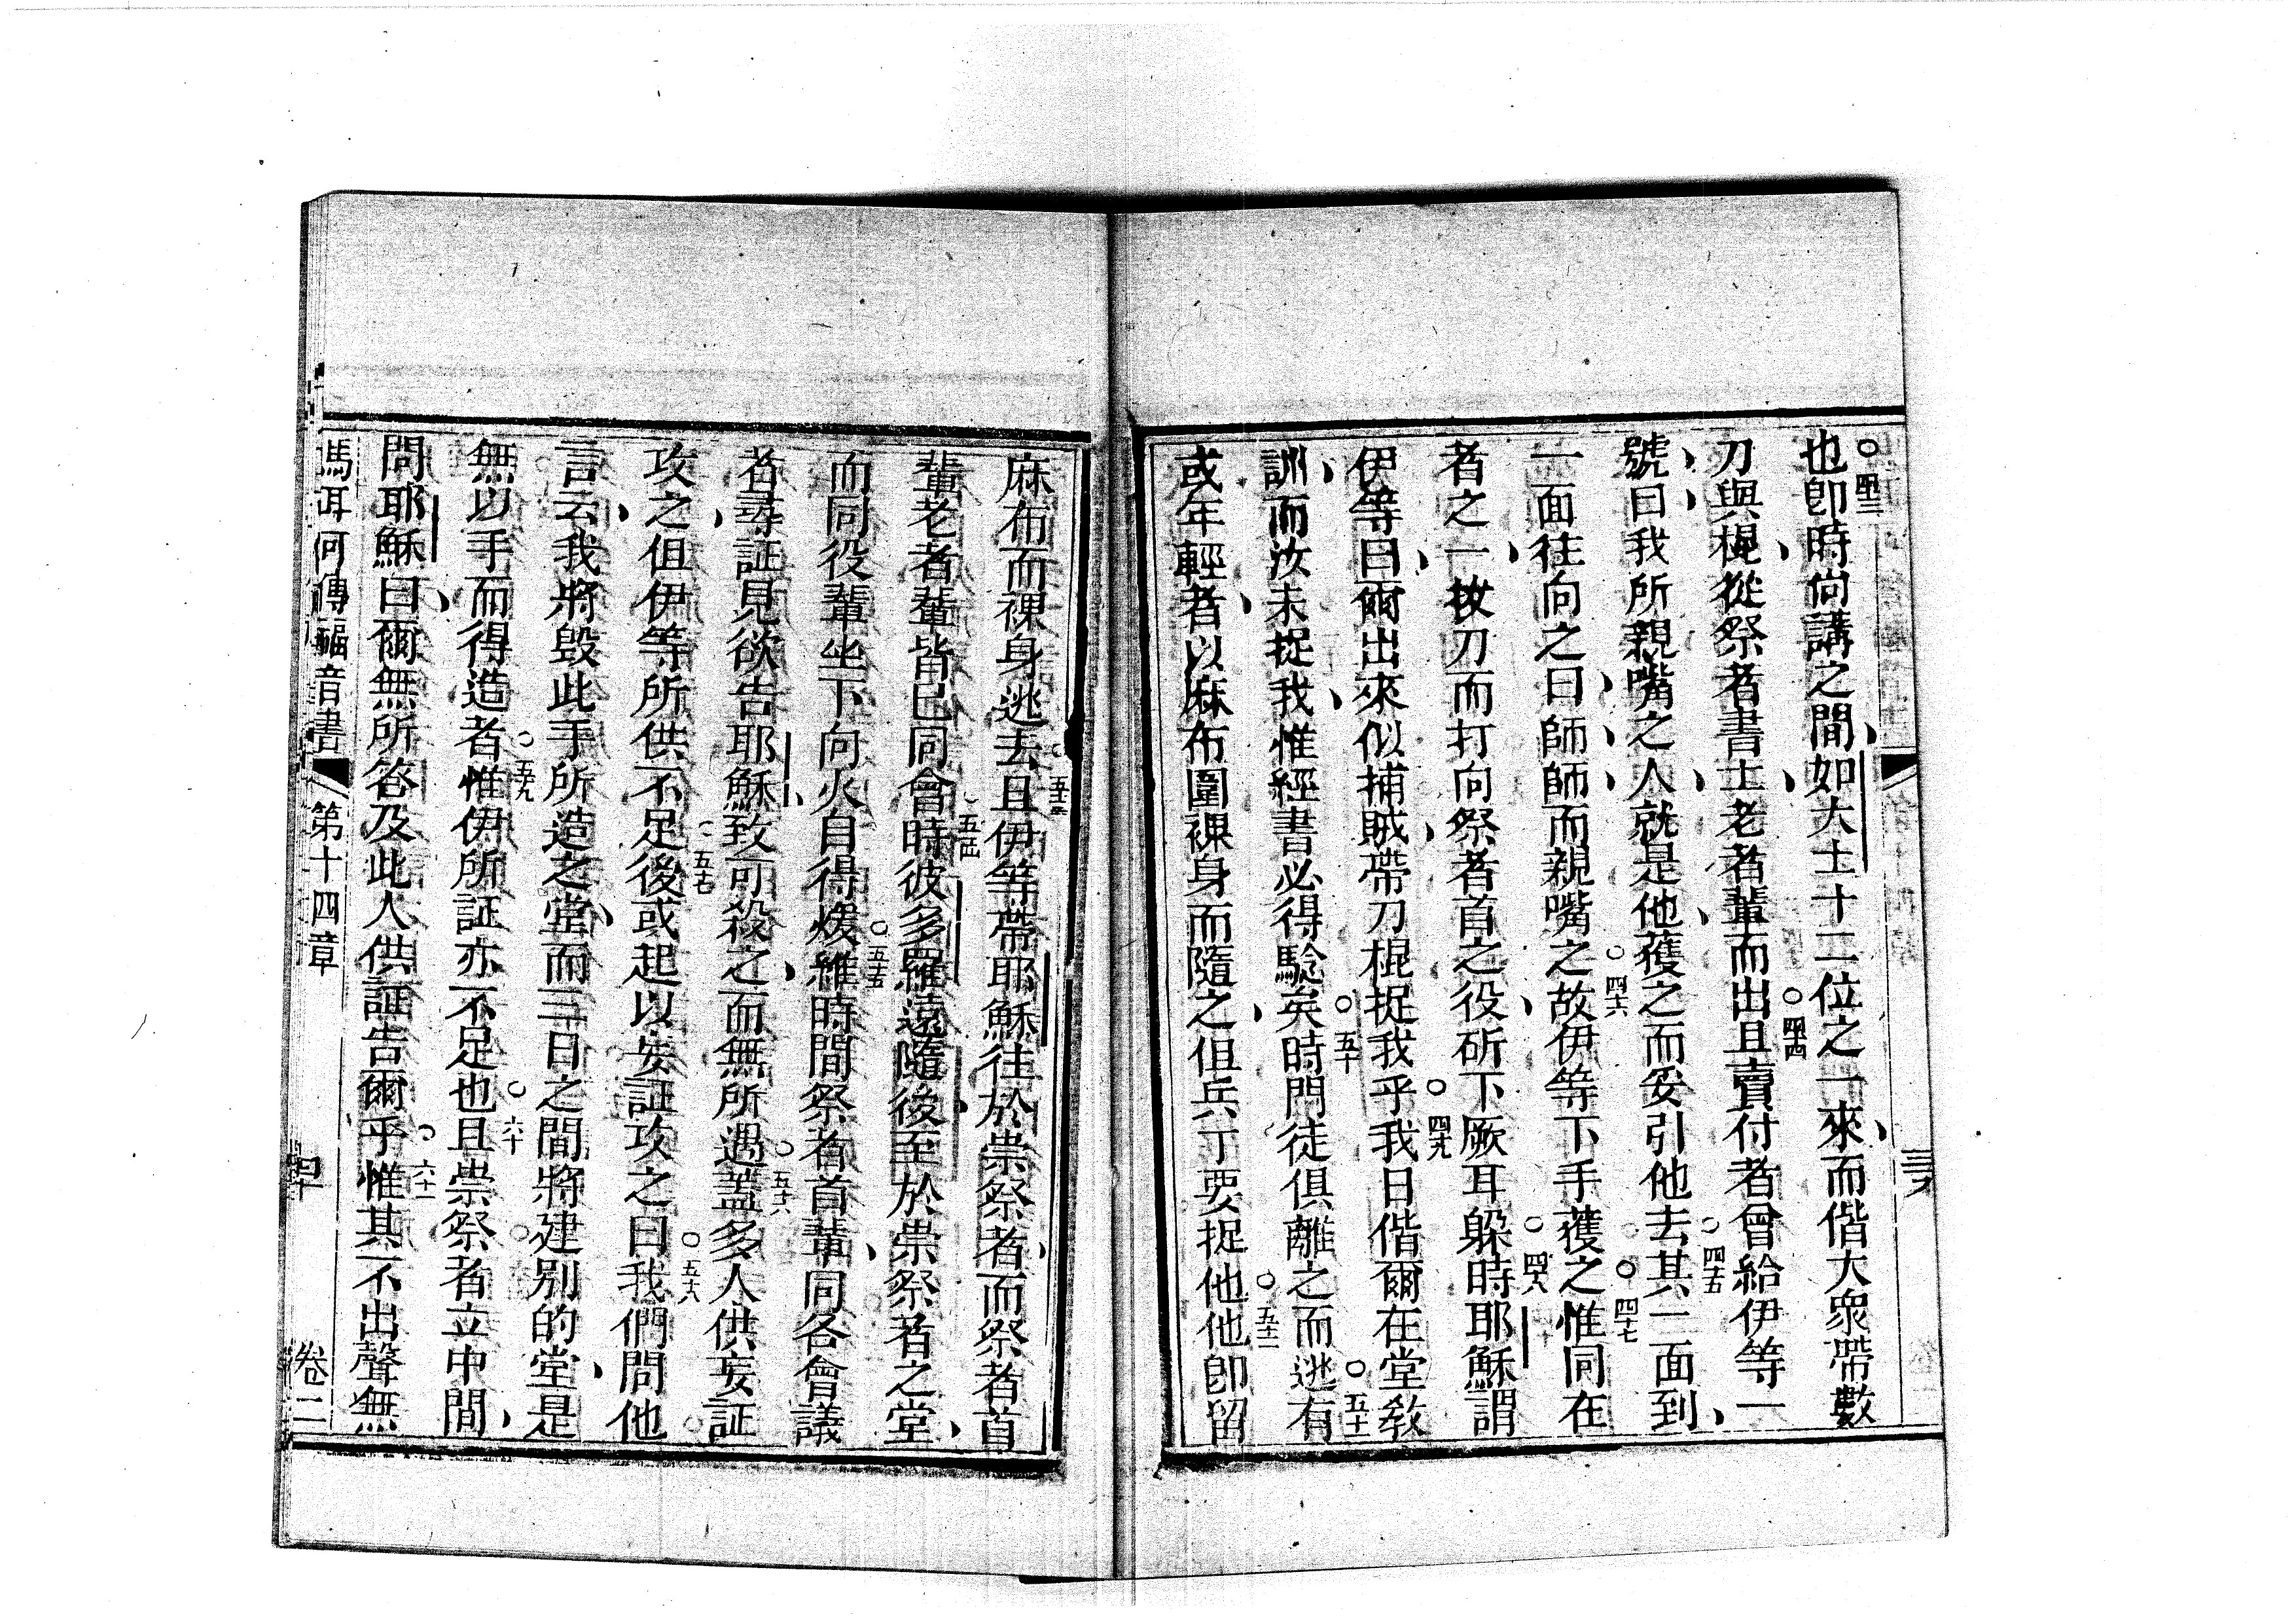 也○四十三卽時尙講之間如大士十二位之一來而偕大衆帶數
刀與棍從祭者書士老者輩而出○四十四且賣付者曾給伊等一
號曰我所親嘴之人就是他獲之而妥引他去○四十五其一面到
一面往向之曰師師而親嘴之○四十六故伊等下手獲之○四十七惟同在
者之一拔刀而打向祭者首之役斫下厥耳躲○四十八時耶穌謂
伊等曰爾出來似捕賊帶刀棍捉我乎○四十九我日偕爾在堂敎
訓而汝未捉我惟經書必得驗矣○五十時門徒俱離之而逃○五十一有
或年輕者以麻布圍裸身而隨之但兵丁要捉他○五十二他卽留
麻布而裸身逃去○五十三且伊等帶耶穌往於崇祭者而祭者首
輩老者輩皆已同會時○五十四彼多羅遠隨後至於崇祭者之堂
而同役輩坐下向火自得煖○五十五維時間祭者首輩同各會議
者尋証見欲告耶穌致可殺之而無所遇○五十六蓋多人供妄証
攻之但伊等所供不足○五十七後或起以妄証攻之曰○五十八我們問他
言云我將毀此手所造之堂而三日之間將建別的堂是
無以手而得造者○五十九惟伊所証亦不足也○六十且崇祭者立中間
問耶穌曰爾無所答及此人供証告爾乎○六十一惟其不出聲無
馬耳可傳福音書 第十四章 四十 卷二